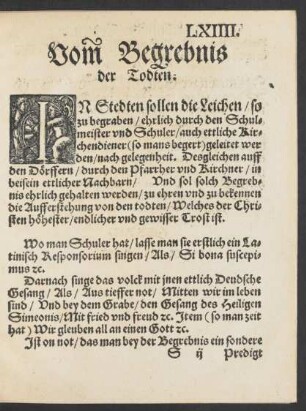 LXIIII.
Vom̃ Begrebnis
der Todten.
IN Stedten sollen die Leichen / so
zu begraben / ehrlich durch den Schul-
meister vnd Schuler / auch ettliche Kir-
chendiener (so mans begert) geleitet wer
den / nach gelegenheit. Desgleichen auff
den Dörffern / durch den Pfarrher vnd Kirchner / in
beisein ettlicher Nachbarn / Vnd sol solch Begreb-
nis ehrlich gehalten werden / zu ehren vnd zu bekennen
die Aufferstehung von den todten / Welches der Chri-
sten höhester / endlicher vnd gewisser Trost ist.
Wo man Schuler hat / lasse man sie erstlich ein La-
tinisch Responsorium singen / Als / Si bona suscepi-
mus ꝛc.
Darnach singe das volck mit jnen ettlich Deudsche
Gesang / Als / Aus tieffer not / Mitten wir im leben
sind / Vnd bey dem Grabe / den Gesang des Heiligen
Simeonis / Mit fried vnd freud ꝛc. Item (so man zeit
hat) Wir gleuben all an einen Gott ꝛc.
Ist on not / das man bey der Begrebnis ein sondere
S ij Predigt